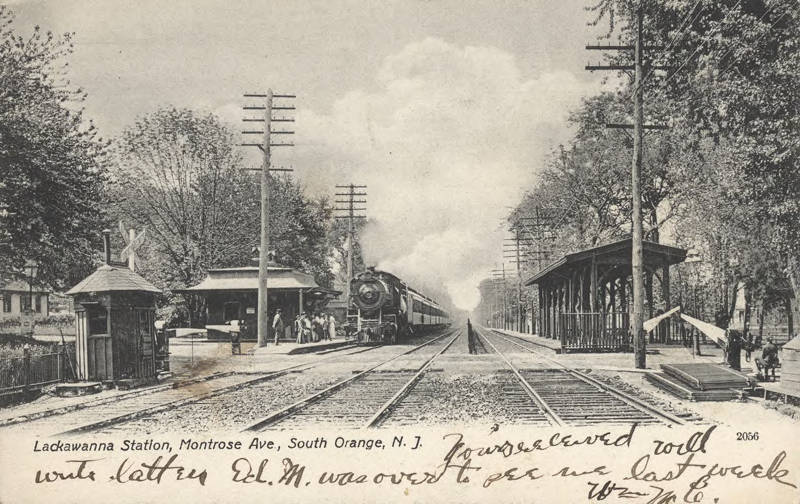 Lackawanna Station, Montrose Ave., South Orange, N. J.
2056
Yours received will
write latter Ed. M. was over to see me last week
Wm Mc C